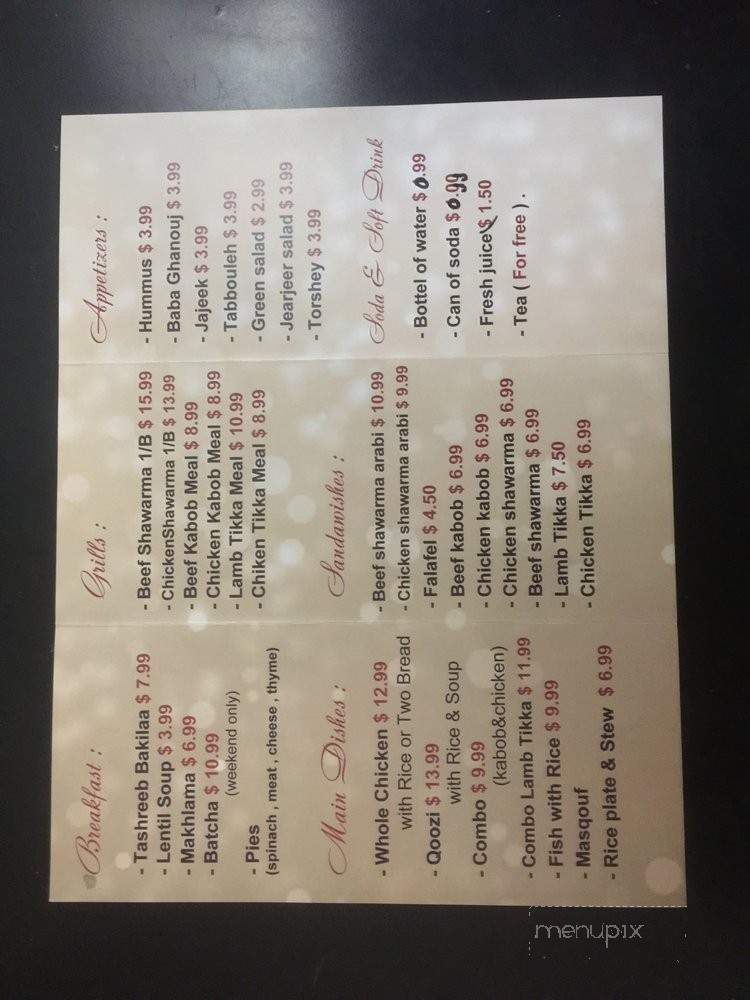 Breakfast :
- Tashreeb Bakilaa $ 7.99
- Lentil Soup $ 3.99
- Makhlama $ 6.99
- Batcha $ 10.99
(weekend only)
- Pies
(spinach , meat , cheese , thyme)
Main Dishes :
- Whole Chicken $ 12.99
with Rice or Two Bread
- Qoozi $ 13.99
with Rice & Soup
- Combo $ 9.99
(kabob&chicken)
- Combo Lamb Tikka $ 11.99
- Fish with Rice $ 9.99
- Masqouf
- Rice plate & Stew $ 6.99
Grills :
- Beef Shawarma 1/B $ 15.99
- ChickenShawarma 1/B $ 13.99
- Beef Kabob Meal $ 8.99
- Chicken Kabob Meal $ 8.99
- Lamb Tikka Meal $ 10.99
- Chiken Tikka Meal $ 8.99
Sandawishes :
- Beef shawarma arabi $ 10.99
- Chicken shawarma arabi $ 9.99
- Falafel $ 4.50
- Beef kabob $ 6.99
- Chicken kabob $ 6.99
- Chicken shawarma $ 6.99
- Beef shawarma $ 6.99
- Lamb Tikka $ 7.50
- Chicken Tikka $ 6.99
Appetizers :
- Hummus $ 3.99
- Baba Ghanouj $ 3.99
- Jajeek $ 3.99
- Tabbouleh $ 3.99
- Green salad $ 2.99
- Jearjeer salad $ 3.99
- Torshey $ 3.99
Soda & Soft Drink
- Bottel of water $ 0.99
- Can of soda $ 0.99
- Fresh juice $ 1.50
- Tea ( For free ) .
menupix